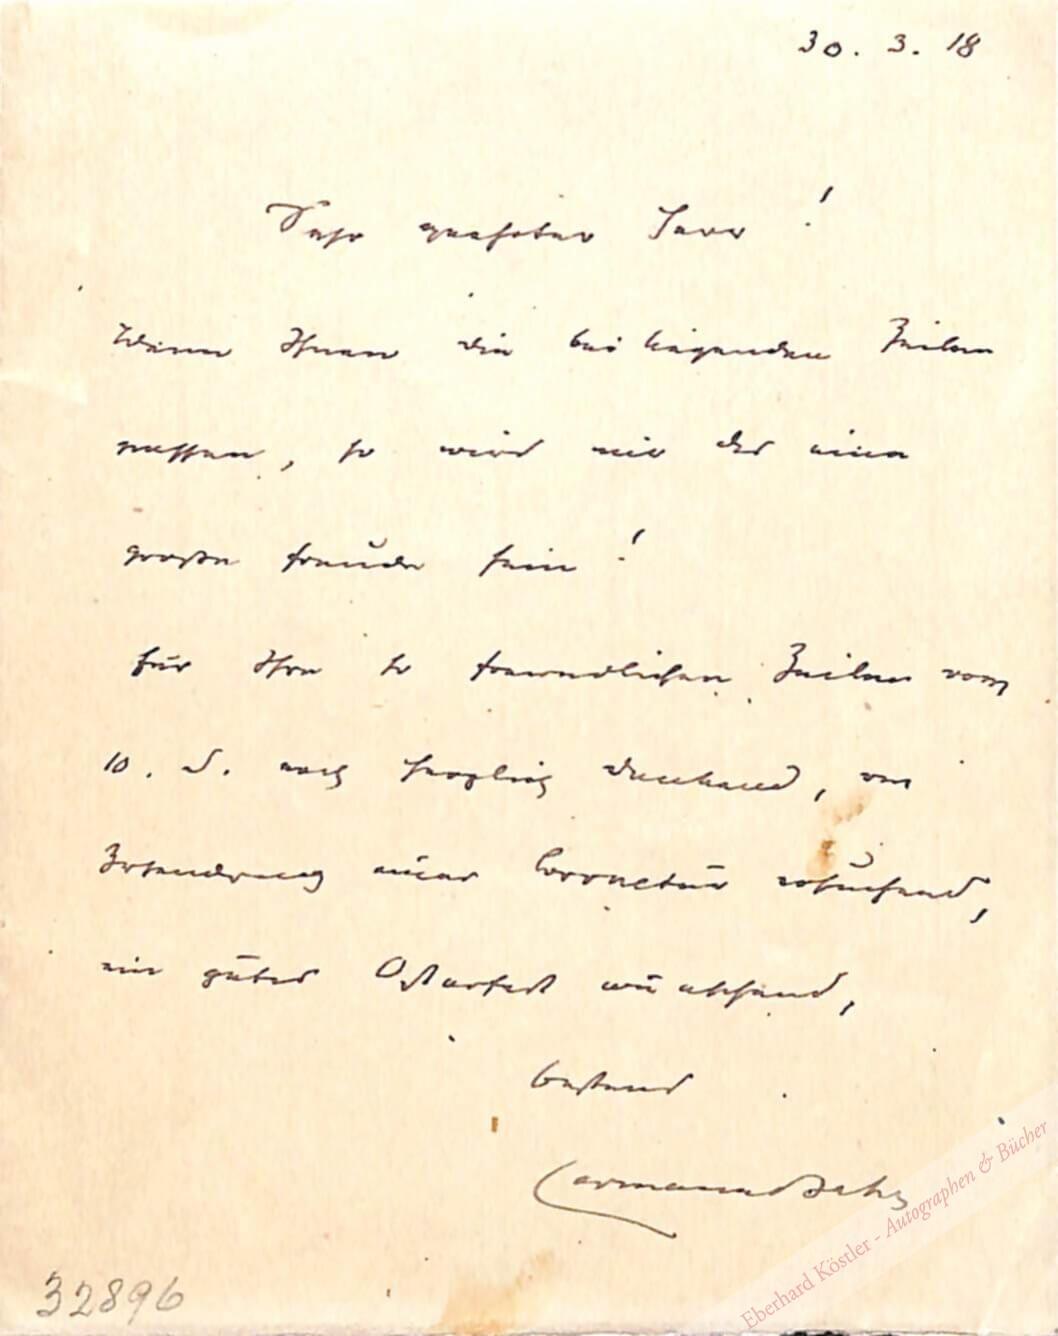 30. 3. 18
Sehr geehrter Herr!
Wenn Ihnen die beiliegenden Zeilen
passen, so wird mir das eine
große Freude sein!
Für Ihre so freundlichen Zeilen vom
10. d. noch herzlich dankend, um
Zusendung einer Correctur ersuchend,
ein gutes Osterfest wünschend,
bestens
Hermann Bahr
32896
Eberhard Köstler - Autographen & Bücher